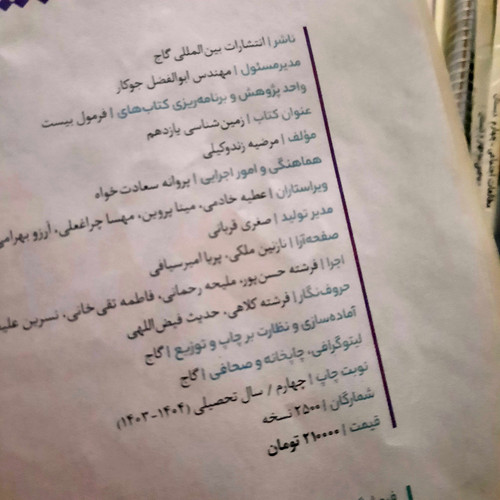 ناشر | انتشارات بین‌المللی گاج
مدیرمسئول | مهندس ابوالفضل جوکار
واحد پژوهش و برنامه‌ریزی کتاب‌های | فرمول بیست
عنوان کتاب | زمین‌شناسی یازدهم
مؤلف | مرضیه زندوکیلی
هماهنگی و امور اجرایی | پروانه سعادت‌خواه
ویراستاران | عطیه خادمی، مینا پروین، مهسا چراغعلی، آرزو
مدیر تولید | صغری قربانی
صفحه‌آرا | نازنین ملکی، پریا امیرسیافی
اجرا | فرشته حسن‌پور، ملیحه رحمانی، فاطمه تقی‌خانی، نسرین
حروف‌نگار | فرشته کلاهی، حدیث فیض‌اللهی
آماده‌سازی و نظارت بر چاپ و توزیع | گاج
لیتوگرافی، چاپخانه و صحافی | گاج
نوبت چاپ | چهارم / سال تحصیلی (۱۴۰۴-۱۴۰۳)
شمارگان | ۲۵۰۰ نسخه
قیمت | ۲۱۰۰۰۰ تومان